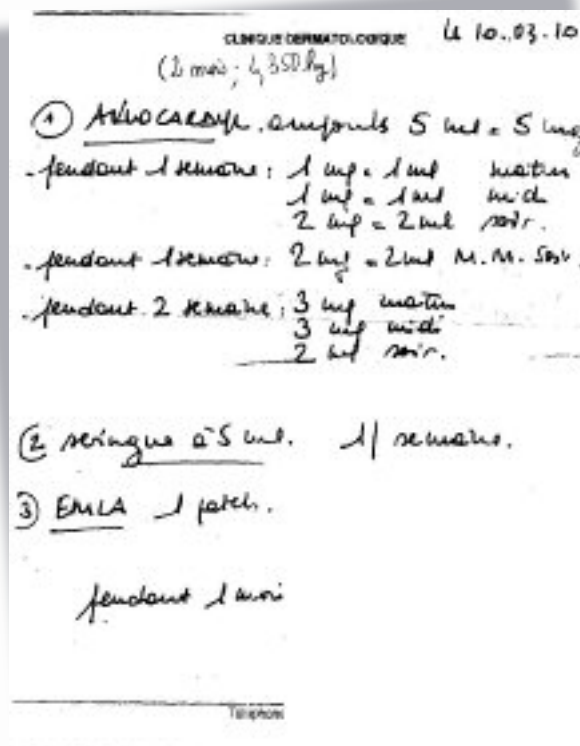 CLINIQUE DERMATOLOGIQUE Le 10.03.10
(2 mois ; 4,350 kg)
① AVLOCARDYL. ampoules 5 ml = 5 mg
- pendant 1 semaine : 1 mg = 1 ml matin
1 mg = 1 ml midi
2 mg = 2 ml soir.
- pendant 1 semaine : 2 mg = 2 ml M. M. Soir.
- pendant 2 semaine : 3 mg matin
3 mg midi
2 ml soir.
② seringue à 5 ml. 1/ semaine.
③ EMLA 1 patch.
pendant 1 mois
Téléphone